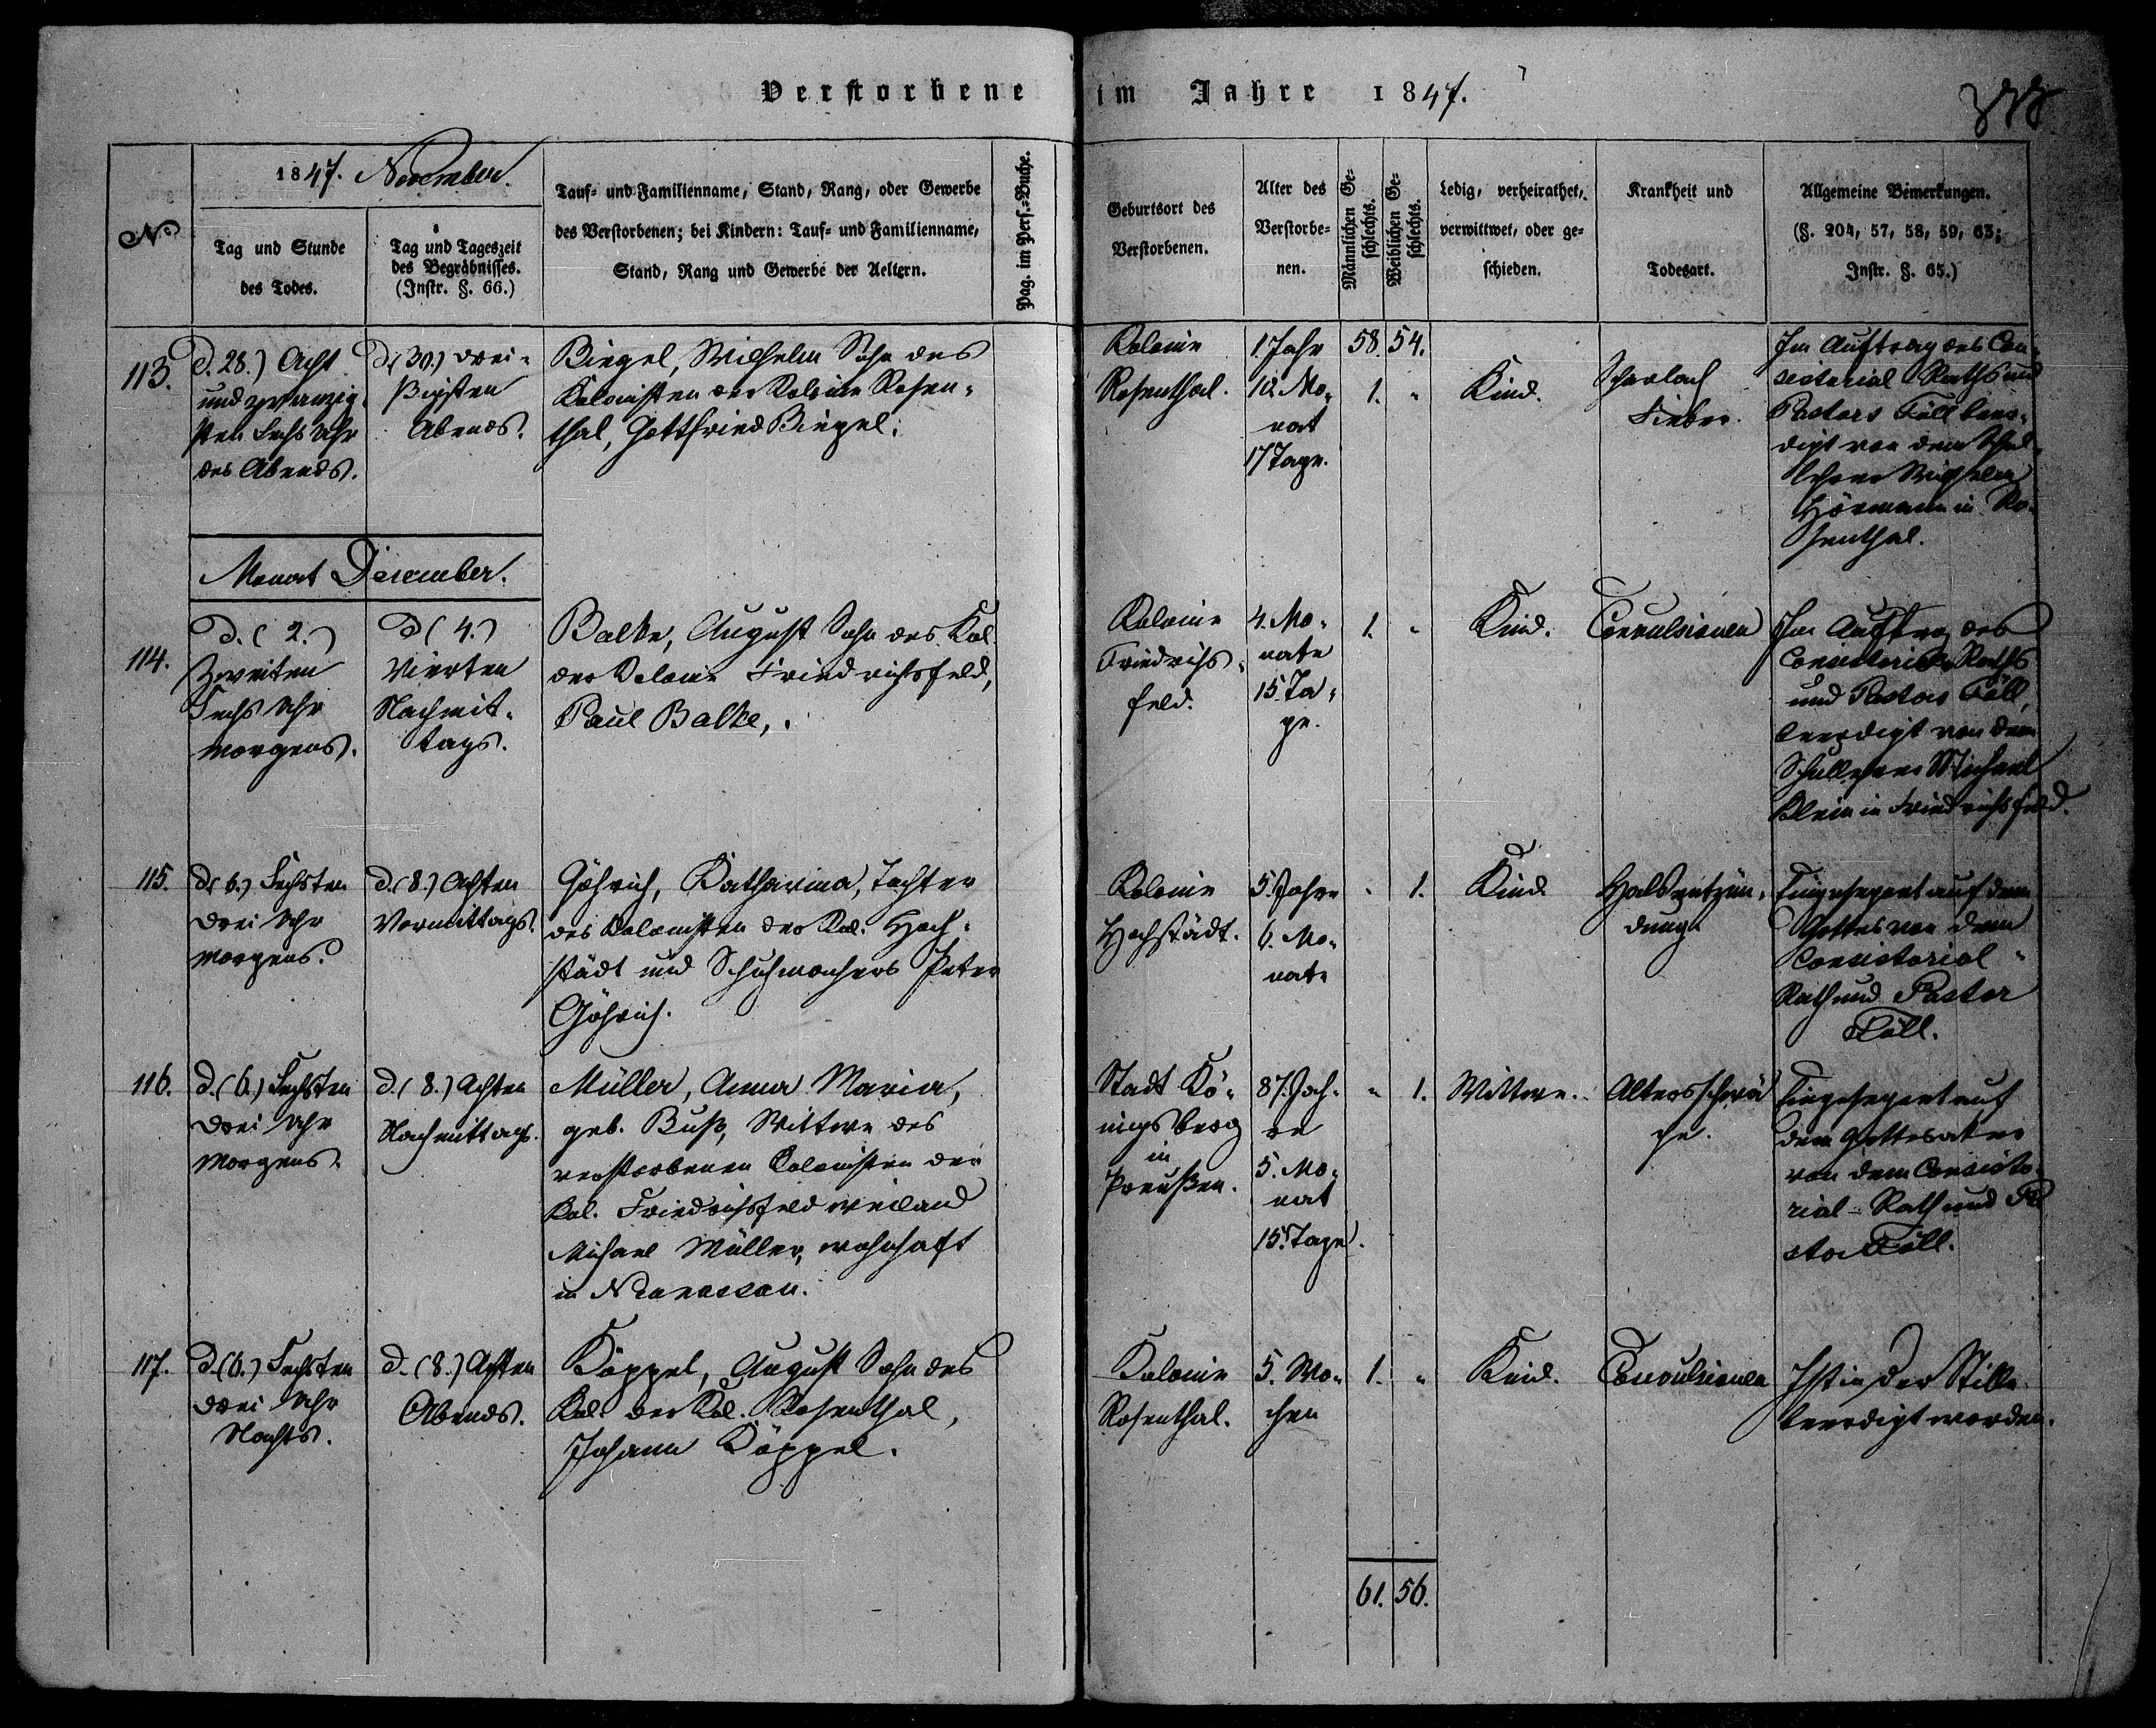 Verstorbene im Jahre 1847.
No
1847. November.
Tag und Stunde
des Todes.
Tag und Tageszeit
des Begräbnisses.
(Instr. §. 66.)
Tauf- und Familienname, Stand, Rang, oder Gewerbe
des Verstorbenen; bei Kindern: Tauf- und Familienname,
Stand, Rang und Gewerbe der Aeltern.
Pag. im Pers.-Buche.
Geburtsort des
Verstorbenen.
Alter des
Verstorbe-
nen.
Männlichen Ge-
schlechts.
Weiblichen Ge-
schlechts.
Ledig, verheirathet,
verwittwet, oder ge-
schieden.
Krankheit und
Todesart.
Allgemeine Bemerkungen.
(§. 204, 57, 58, 59, 63;
Instr. §. 65.)
113.
d. 28.) Acht
und zwanzig-
sten Sechs Uhr
des Abends.
d. (30.) drei-
ßigsten
Abends.
Biegel, Wilhelm Sohn des
Kolonisten der Kolonie Rosen-
thal, Gottfried Biegel.
Kolonie
Rosenthal.
1. Jahr
10. Mo-
nat
17 Tage.
58. 54.
1. "
Kind.
Scharlach
Fieber.
Im Auftrag des Con-
sistorial Raths und
Pastors Föll beer-
digt von dem Schul-
lehrer Wilhelm
Hörmann in Ro-
senthal.
Monat December.
114.
D. (2.)
Zweiten
Sechs Uhr
morgens.
D (4.)
Vierten
Nachmit-
tags.
Balke, August Sohn des Kol.
der Kolonie Friedrichsfeld,
Paul Balke,.
Kolonie
Friedrichs-
feld.
4. Mo-
nate
15 Ta-
ge.
1. "
Kind.
Convulsionen
Im Auftrag des
Consistorial Raths
und Pastors Föll,
beerdigt von dem
Schullehrer Michael
Klein in Friedrichsfeld.
115.
d. (6.) Sechsten
drei Uhr
morgens.
d. (8.) Achten
Vormittags.
Göhrich, Katharina, Tochter
des Kolonisten der Kol. Hoch-
städt und Schuhmachers Peter
Göhrich.
Kolonie
Hochstädt.
5. Jahre
6. Mo-
nate
" 1.
Kind
Halsentzün-
dung.
Eingesegnet auf dem
Gottes von dem
Consistorial-
Rath und Pastor
Föll.
116.
d. (6.) Sechsten
drei Uhr
Morgens.
d. (8.) Achten
Nachmittags.
Müller, Anna Maria,
geb. Buß, Wittwe des
verstorbenen Kolonisten der
Kol. Friedrichsfeld weiland
Michael Müller, wohnhaft
in
Stadt Kö-
nigsberg
in
Preußen.
87. Jah-
re
5. Mo-
nat
15. Tage.
" 1.
Wittwe.
Altersschwä
che.
Eingesegnet auf
dem Gottesacker
von dem Consisto-
rial-Rath und Pa
stor Föll.
117.
d. (6.) Sechsten
drei Uhr
Nachts.
d. (8.) Achten
Abends.
Köppel, August Sohn des
Kol. der Kol. Rosenthal,
Johann Köppel.
Kolonie
Rosenthal.
5. Wo-
chen
1. "
Kind.
Convulsionen
Ist in der Stille
beerdigt worden.
61. 56.